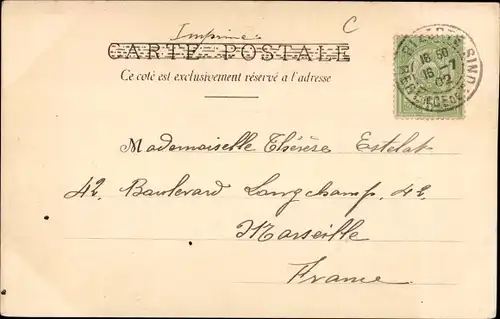 Imprimé
C
CARTE POSTALE
Ce coté est exclusivement réservé a l'adresse
16 50
16 - 7
02
Mademoiselle Thérèse Estelat
42, Boulevard Longchamp. 42,
Marseille
France